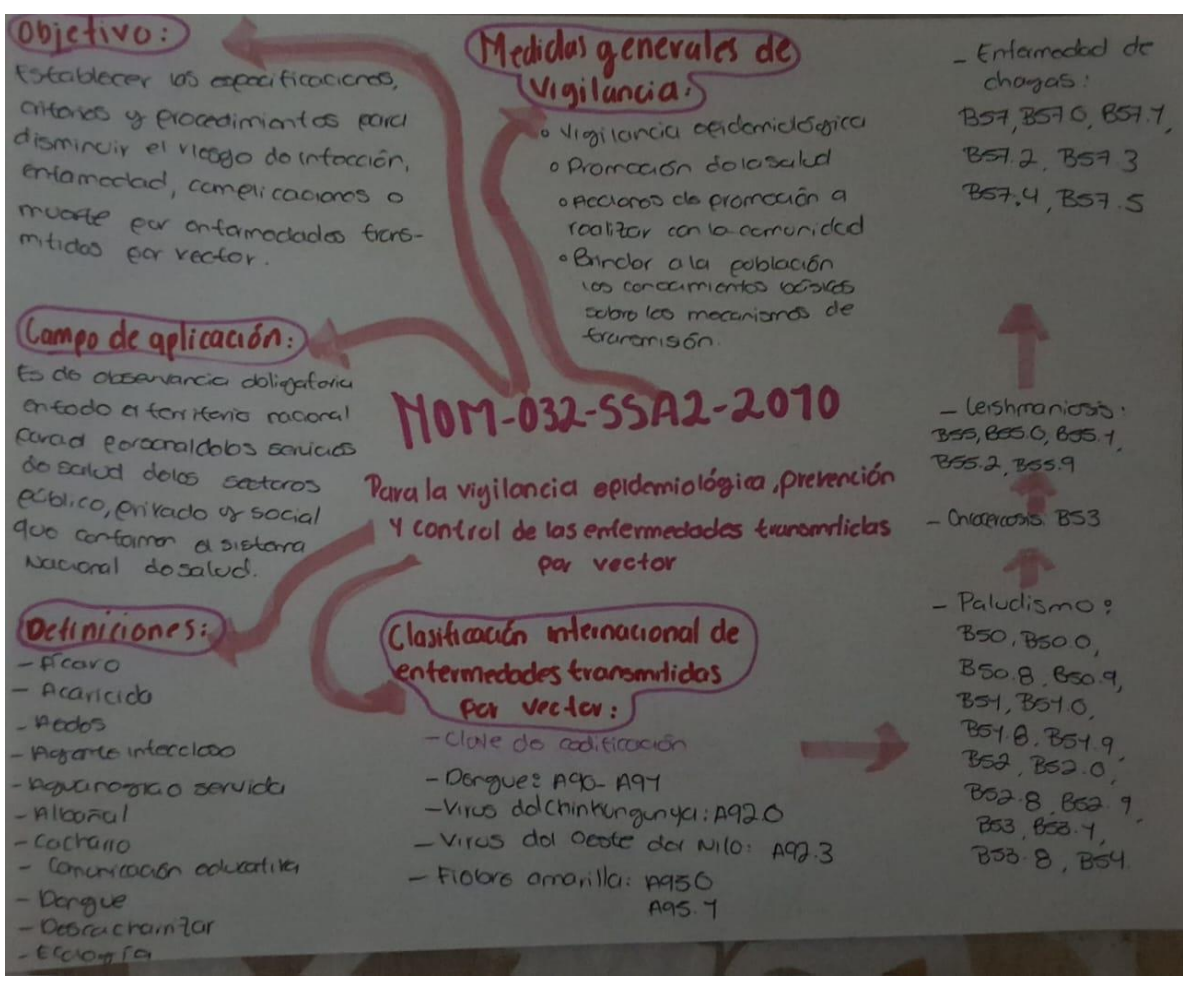 Objetivo:
Establecer las especificaciones,
criterios y procedimientos para
disminuir el riesgo de infección,
enfamedad, complicaciones o
muerte por enfermedades trans-
mitidas por vector.
Campo de aplicación:
Es de observancia obligatoria
en todo el territorio nacional
para el personal de los servicios
de salud de los sectores
público, privado y social
que conforman el sistema
Nacional de salud.
Definiciones:
- Ácaro
- Acaricida
- Aedes
- Agente infeccioso
- Agua negra o servida
- Albañal
- Cacharro
- Comunicación educativa
- Dengue
- Descacharrizar
- Ecología
Medidas generales de
Vigilancia:
° Vigilancia epidemiológica
° Promoción de la salud
° Acciones de promoción a
realizar con la comunidad
° Brindar a la población
los conocimientos básicos
sobre los mecanismos de
transmisión.
NOM-032-SSA2-2010
Para la vigilancia epidemiológica, prevención
Y control de las enfermedades transmitidas
por vector
Clasificación internacional de
enfermedades transmitidas
por vector:
- Clave de codificación
- Dengue: A90-A91
- Virus del Chinkungunya: A92.0
- Virus del Oeste del Nilo: A92.3
- Fiebre amarilla: A95.0
A95.1
- Paludismo:
B50, B50.0,
B50.8, B50.9,
B51, B51.0,
B51.8, B51.9,
B52, B52.0,
B52.8, B52.9
B53, B53.1,
B53.8, B54.
- Oncocercosis: B53
- Leishmaniosis:
B55, B55.0, B55.1,
B55.2, B55.9
- Enfermedad de
chagas:
B57, B57.0, B57.1,
B57.2, B57.3
B57.4, B57.5